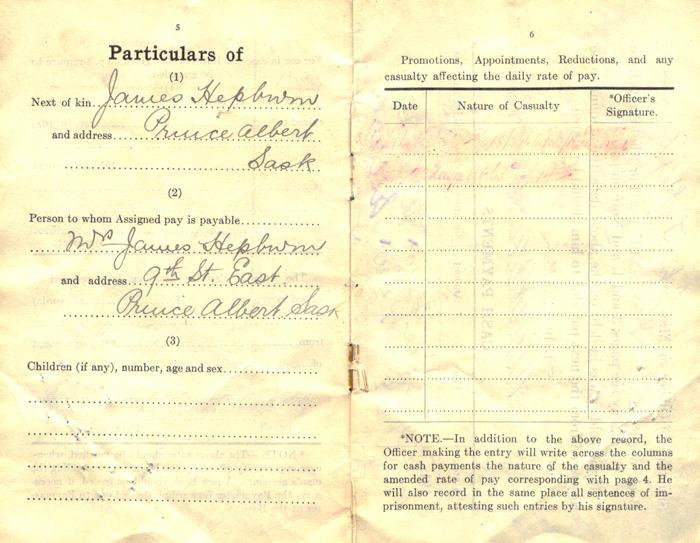 5
Particulars of
(1)
Next of kin. James Hepburn
and address Prince Albert
Sask
(2)
Person to whom Assigned pay is payable
Mrs James Hepburn
and address 9th St. East
Prince Albert Sask
(3)
Children (if any), number, age and sex
6
Promotions, Appointments, Reductions, and any
casualty affecting the daily rate of pay.
Date Nature of Casualty *Officer's
Signature.
*NOTE.—In addition to the above record, the
Officer making the entry will write across the columns
for cash payments the nature of the casualty and the
amended rate of pay corresponding with page 4. He
will also record in the same place all sentences of im-
prisonment, attesting such entries by his signature.